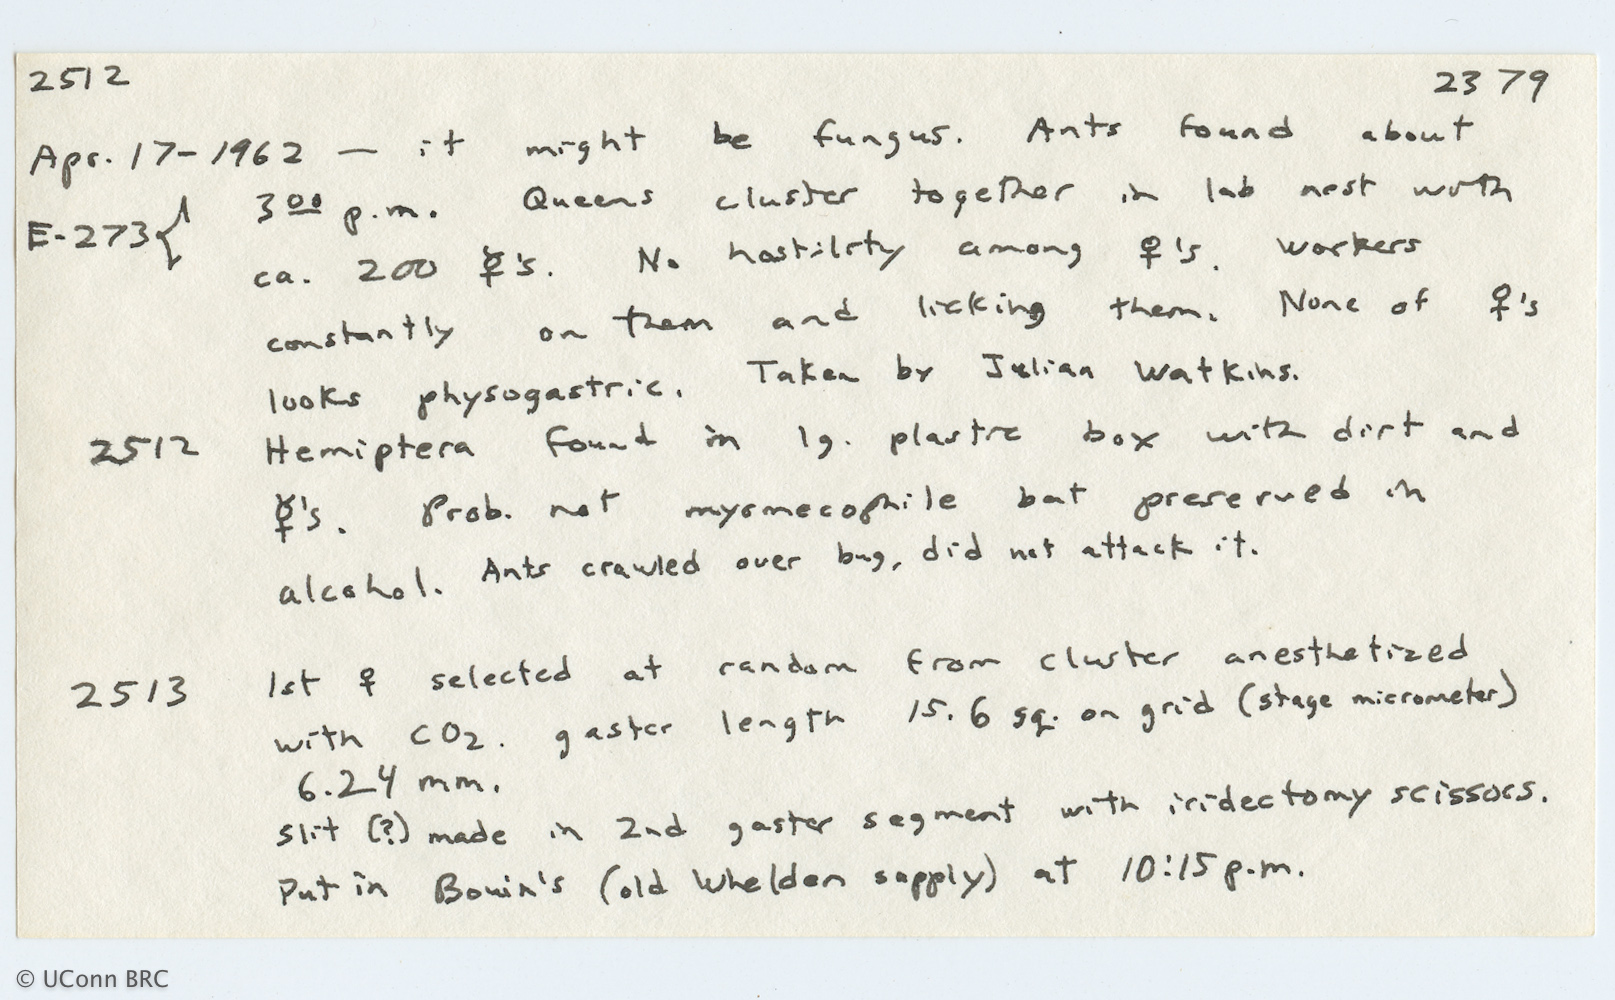 2512 2379
Apr. 17-1962 — it might be fungus. Ants found about
E-273{ 3⁰⁰ p.m. Queens cluster together in lab nest with
ca. 200 ☿'s. No hostility among ♀'s. Workers
constantly on them and licking them. None of ♀'s
looks physogastric. Taken by Julian Watkins.
2512 Hemiptera found in lg. plastic box with dirt and
☿'s. Prob. not myrmecophile but preserved in
alcohol. Ants crawled over bug, did not attack it.
2513 1st ♀ selected at random from cluster anesthetized
with CO2. gaster length 15.6 sq. on grid (stage micrometer)
6.24 mm.
Slit (?) made in 2nd gaster segment with iridectomy scissors.
Put in Bouin's (old Whelden supply) at 10:15 p.m.
© UConn BRC